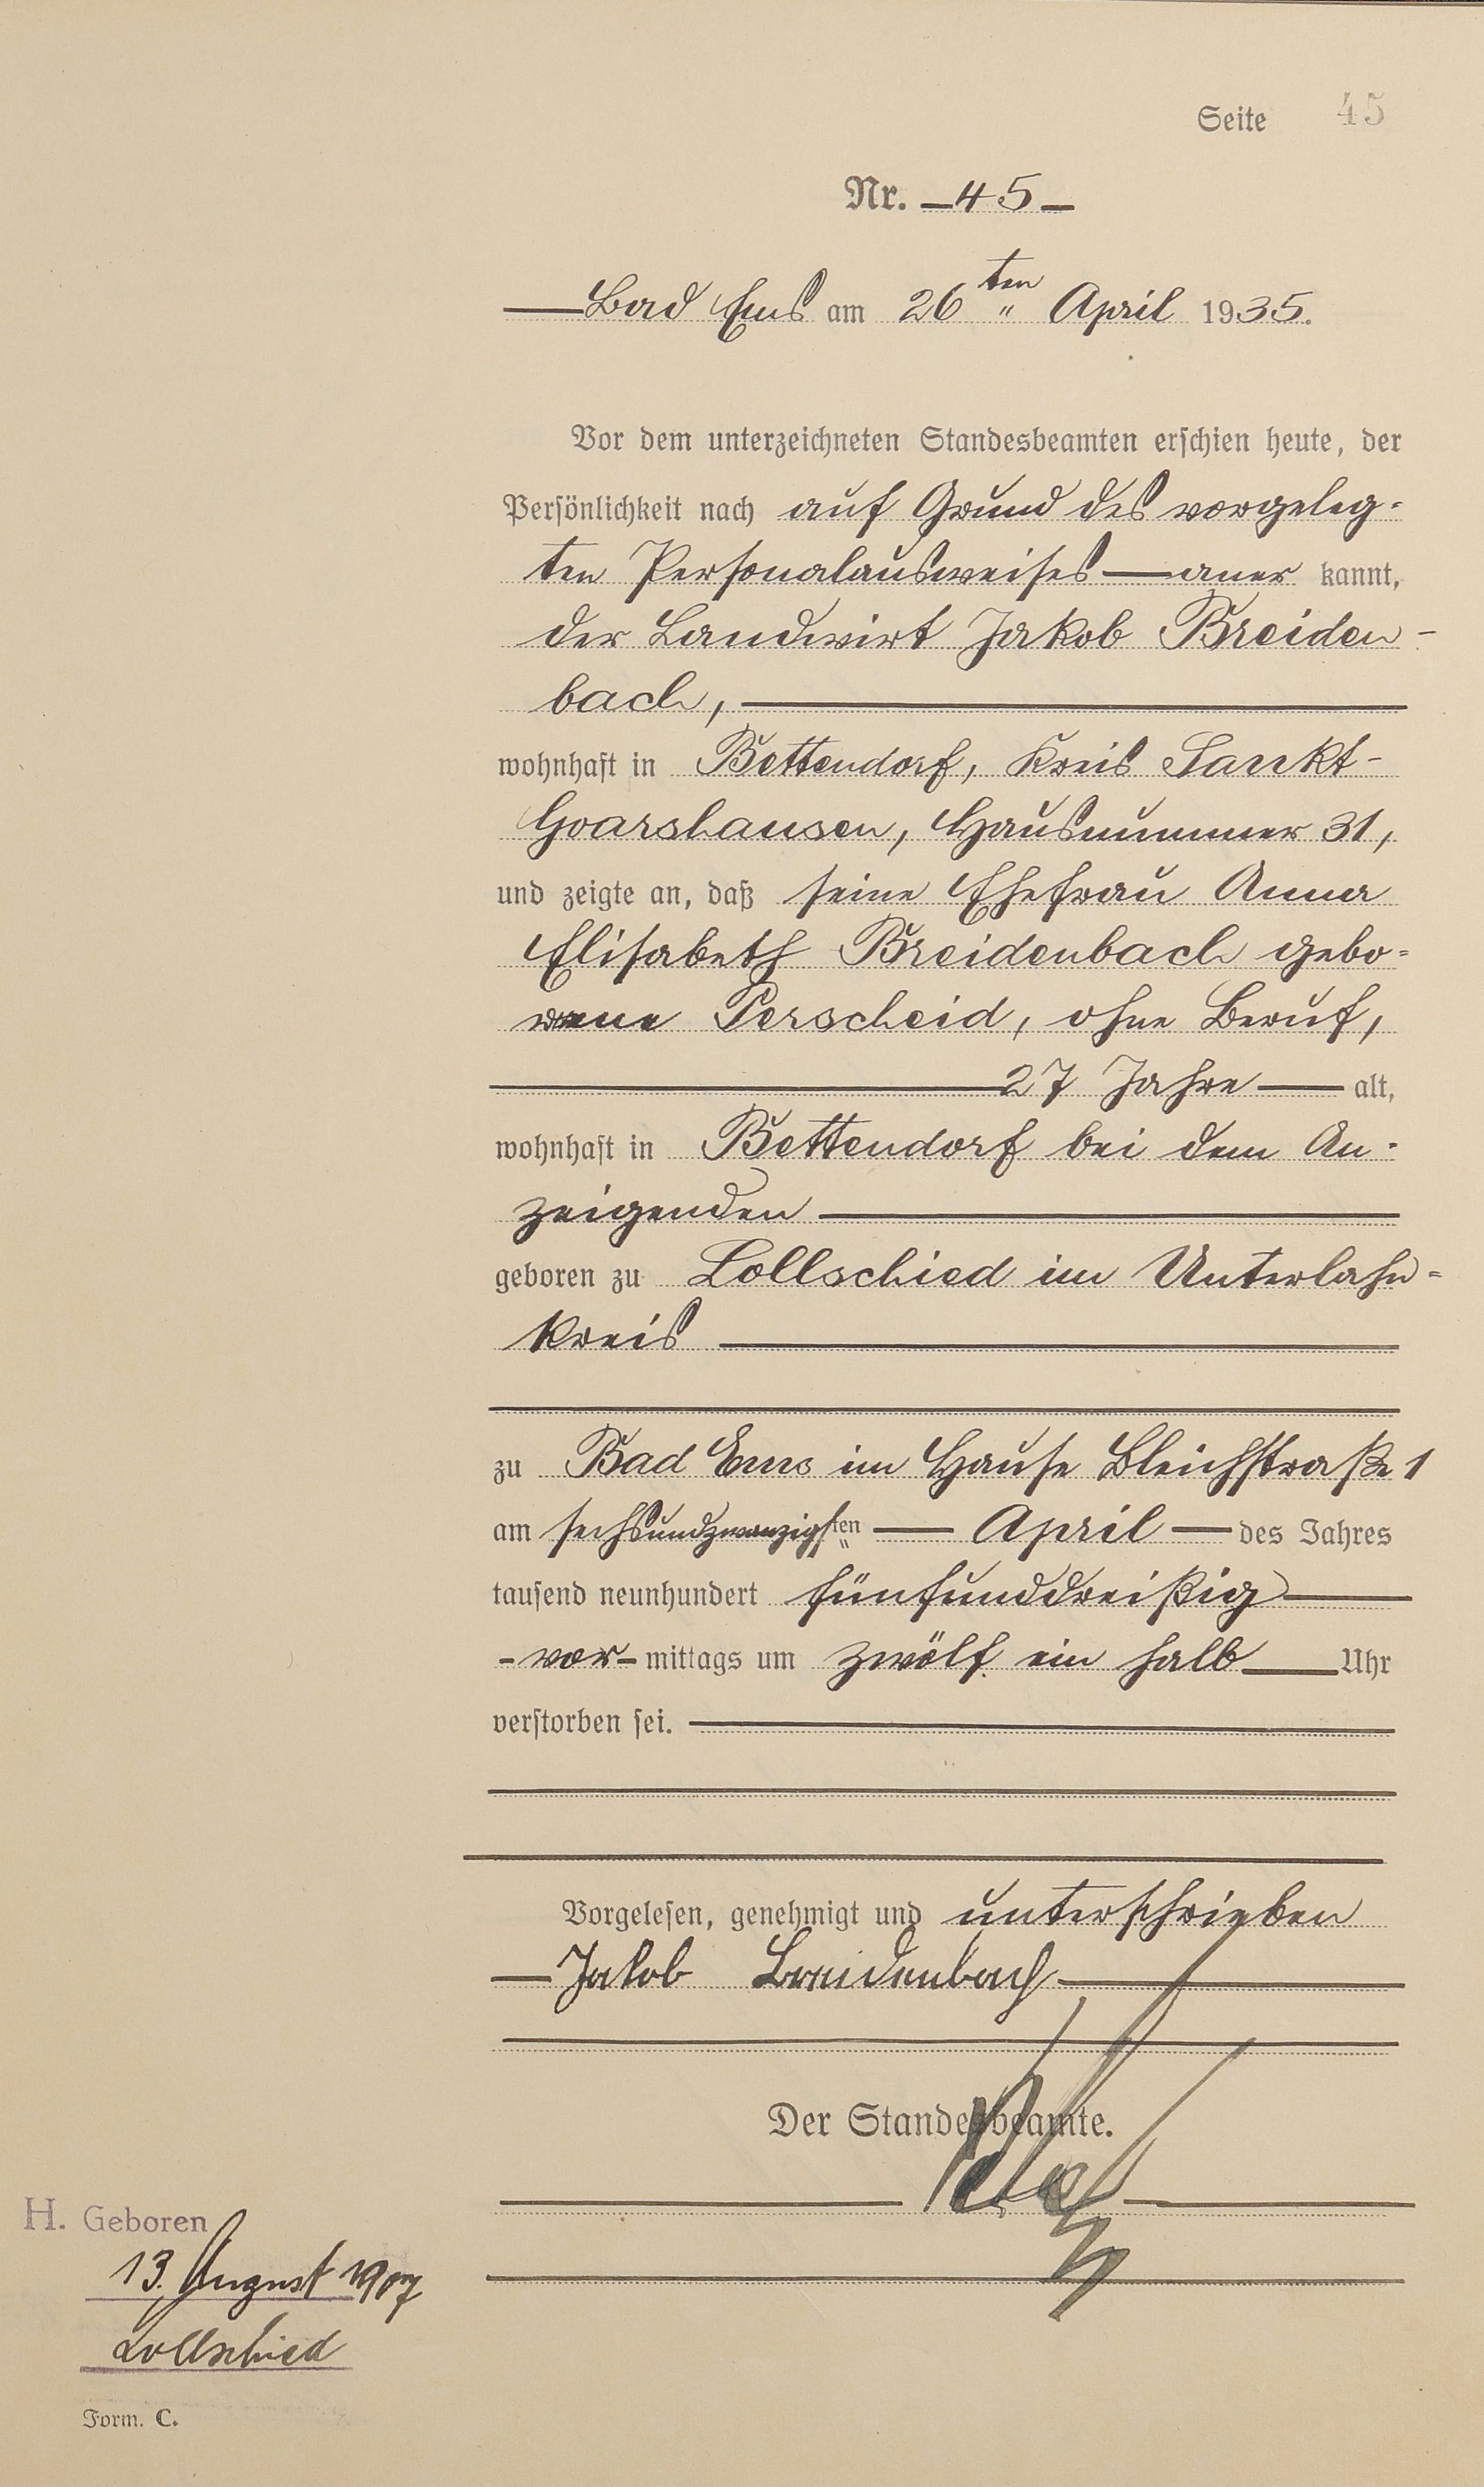 Seite 45
Nr. 45
Bad Ems am 26ten April 1935.
Vor dem unterzeichneten Standesbeamten erschien heute, der
Persönlichkeit nach auf Grund des vorgeleg-
ten Personalausweises — aner kannt,
der Landwirt Jakob Breiden-
bach,
wohnhaft in Bettendorf, Kreis Sankt-
Goarshausen, Hausnummer 31,
und zeigte an, daß seine Ehefrau Anna
Elisabeth Breidenbach gebo-
rene Perscheid, ohne Beruf,
27 Jahre — alt,
wohnhaft in Bettendorf bei dem An-
zeigenden
geboren zu Lollschied im Unterlahn-
kreis
zu Bad Ems im Hause Bleichstraße 1
am sechsundzwanzigsten — April — des Jahres
tausend neunhundert fünfunddreißig
-vor- mittags um zwölf ein halb Uhr
verstorben sei.
Vorgelesen, genehmigt und unterschrieben
Jakob Breidenbach
Der Standesbeamte.
H. Geboren
13. August 1907
Lollschied
Form. C.